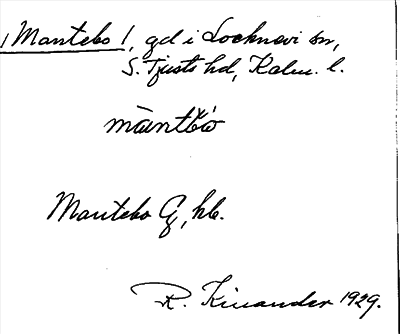 ! Mantebo !, gd i Locknevi sn,
S. Tjusts hd, Kalm. l.
Mantebo G, hb.
R. Kinander 1929.